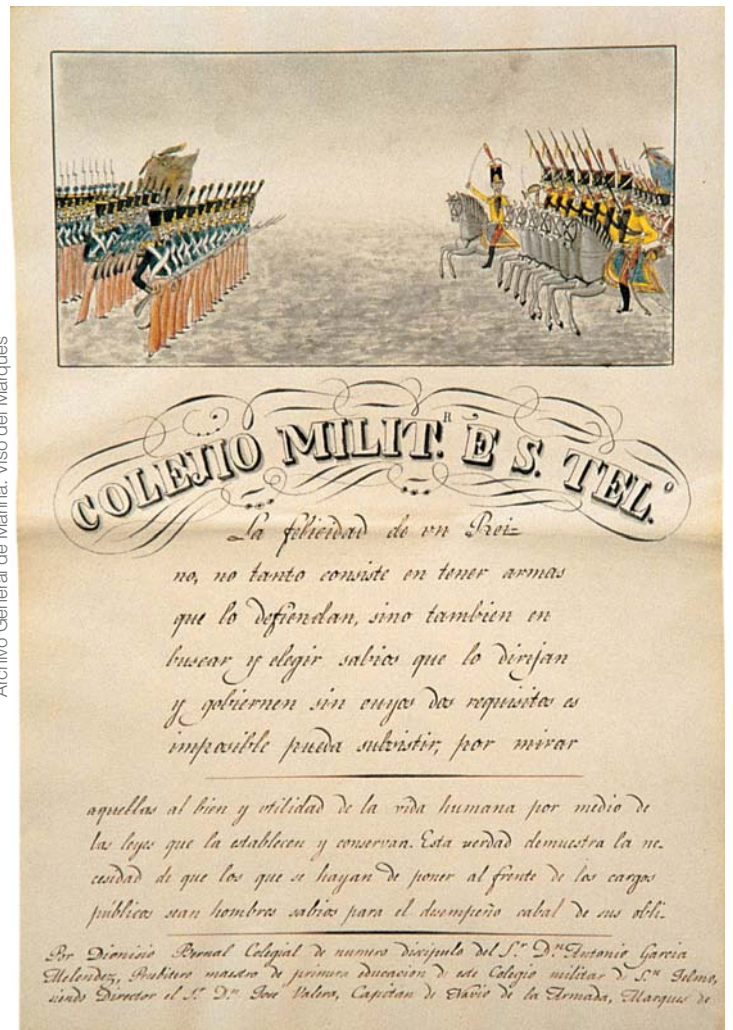 COLEJIO MILIT.R È S. TEL.º
La felicidad de vn Rei=
no, no tanto consiste en tener armas
que lo defiendan, sino tambien en
buscar y elegir sabios que lo dirijan
y gobiernen sin cuyos dos requisitos es
imposible pueda subsistir, por mirar
aquellas al bien y vtilidad de la vida humana por medio de
las leyes que la establecen y conservan. Esta verdad demuestra la ne-
cesidad de que los que se hayan de poner al frente de los cargos
públicos sean hombres sabios para el desempeño cabal de sus obli-
Por Dionicio Bernal Colegial de numero discipulo del S.r D.n Antonio Garcia
Melendez, Presbitero maestro de primera educacion d este Colegio militar d S.n Telmo,
siendo Director el S.r D.n José Valera, Capitan de Navio de la Armada, Marques de
Archivo General de Marina. Viso del Marqués